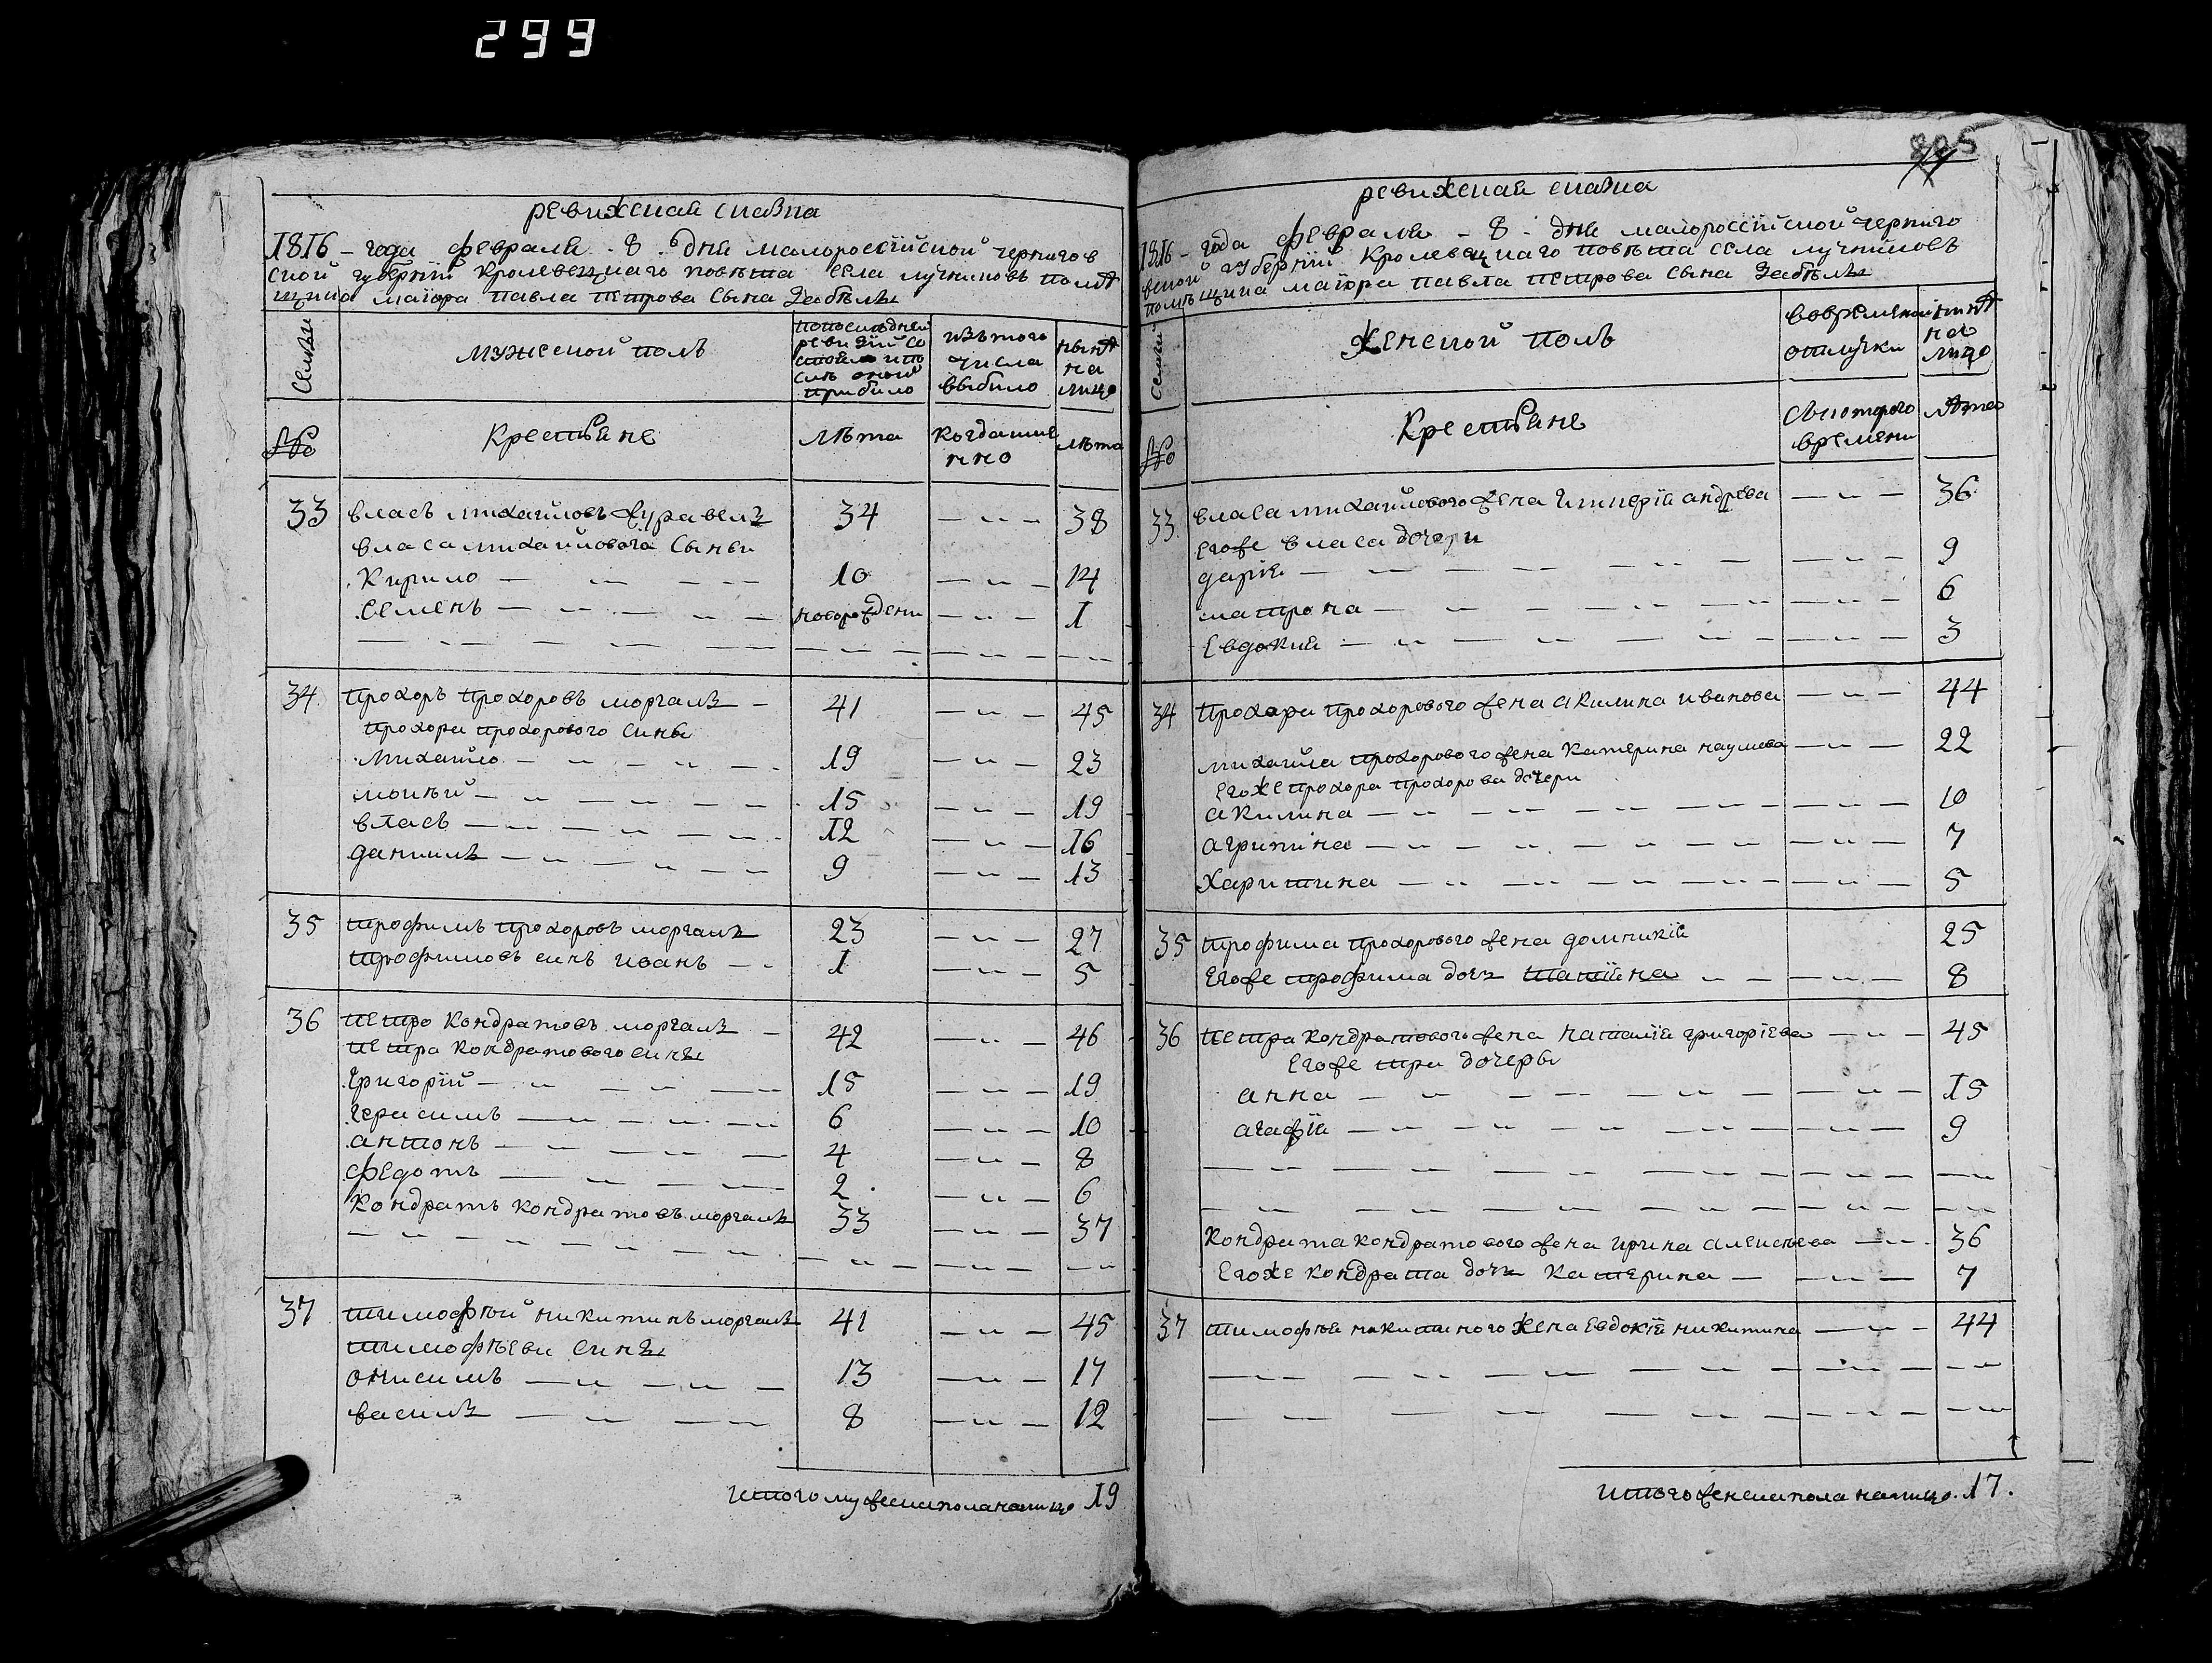 299
ревижская сказка
1816 - года февраля - 8 - дня малороссійской чернигов
ской губерніи Кролевецкаго повѣта села лучниковъ помѣ
щика маіора павла петрова сына Забѣлы
Семьи
мужеской полъ
попослѣдней
ревизіи со
стояло и по
слѣ оной
прибило
изътого
числа
выбило
нынѣ
на
лицо
№
Крестьяне
Лѣта
Когдаиме
нно
лѣта
33 власъ михайловъ журавель 34 — „ — 38
власа михайловога Сыньи
Кирило — — — — 10 — „ — 14
Семенъ — „ — „ — новорожденн — „ — 1
34 прохоръ прохоровъ моргаль — 41 — „ — 45
прохора прохорового сины
Михайло — „ — „ — 19 — „ — 23
моисѣй — „ — „ — 15 — „ — 19
власъ — „ — „ — 12 — „ — 16
данила — „ — „ — 9 — „ — 13
35 трофимъ прохоровъ моргаль 23 — „ — 27
трофимовъ синъ иванъ — „ 1 — „ — 5
36 петро Кондратовъ моргаль — 42 — „ — 46
петра Кондратового сины
Григорій — „ — „ — 15 — „ — 19
Герасимъ — „ — „ — 6 — „ — 10
антонъ — „ — „ — 4 — „ — 8
федотъ — „ — „ — 2 — „ — 6
Кондратъ кондратовъ моргаль 33 — „ — 37
37 тимофѣй никитинъ моргаль 41 — „ — 45
тимофѣеви сины
онисимъ — „ — „ — 13 — „ — 17
василь — „ — — 8 — „ — 12
Итого мужеска пола налицо 19
805
ревижская сказка
1816 - года февраля - 8 - дня малороссійской черниго
вской губерніи Кролевецкаго повѣта села лучниковъ
помѣщика маіора павла петрова сына Забѣлы
Семьи
Женской полъ
вовременной
отлучки
нинѣ
на
лицо
№
Крестьяне
Скоторого
времени
лѣта
33 власа михайлового жена гликерія андреева — „ — 36
егоже власа дочери
дарія — — — — — „ — 9
матрона — „ — „ — „ — 6
Евдокия — „ — „ — „ — 3
34 Прохора прохорового жена акилина иванова — „ — 44
михайла прохорового жена катерина наумова — „ — 22
егоже прохора прохорова дочери
акилина — „ — „ — „ — 10
агрипина — „ — „ — „ — 7
Харитина — „ — „ — „ — 5
35 трофима прохорового жена домникія 25
егоже трофима дочь татіяна „ — — „ — 8
36 петра кондратового жена наталія григоріева — „ — 45
егоже три дочеры
анна — „ — „ — „ — 15
агафія — „ — „ — „ — 9
Кондрата кондратового жена ирина алексѣева — „ — 36
егоже кондрата дочь катерина — — „ — 7
37 тимофѣя никитиного жена Евдокія никитина — „ — 44
Итого женска пола налицо. 17.